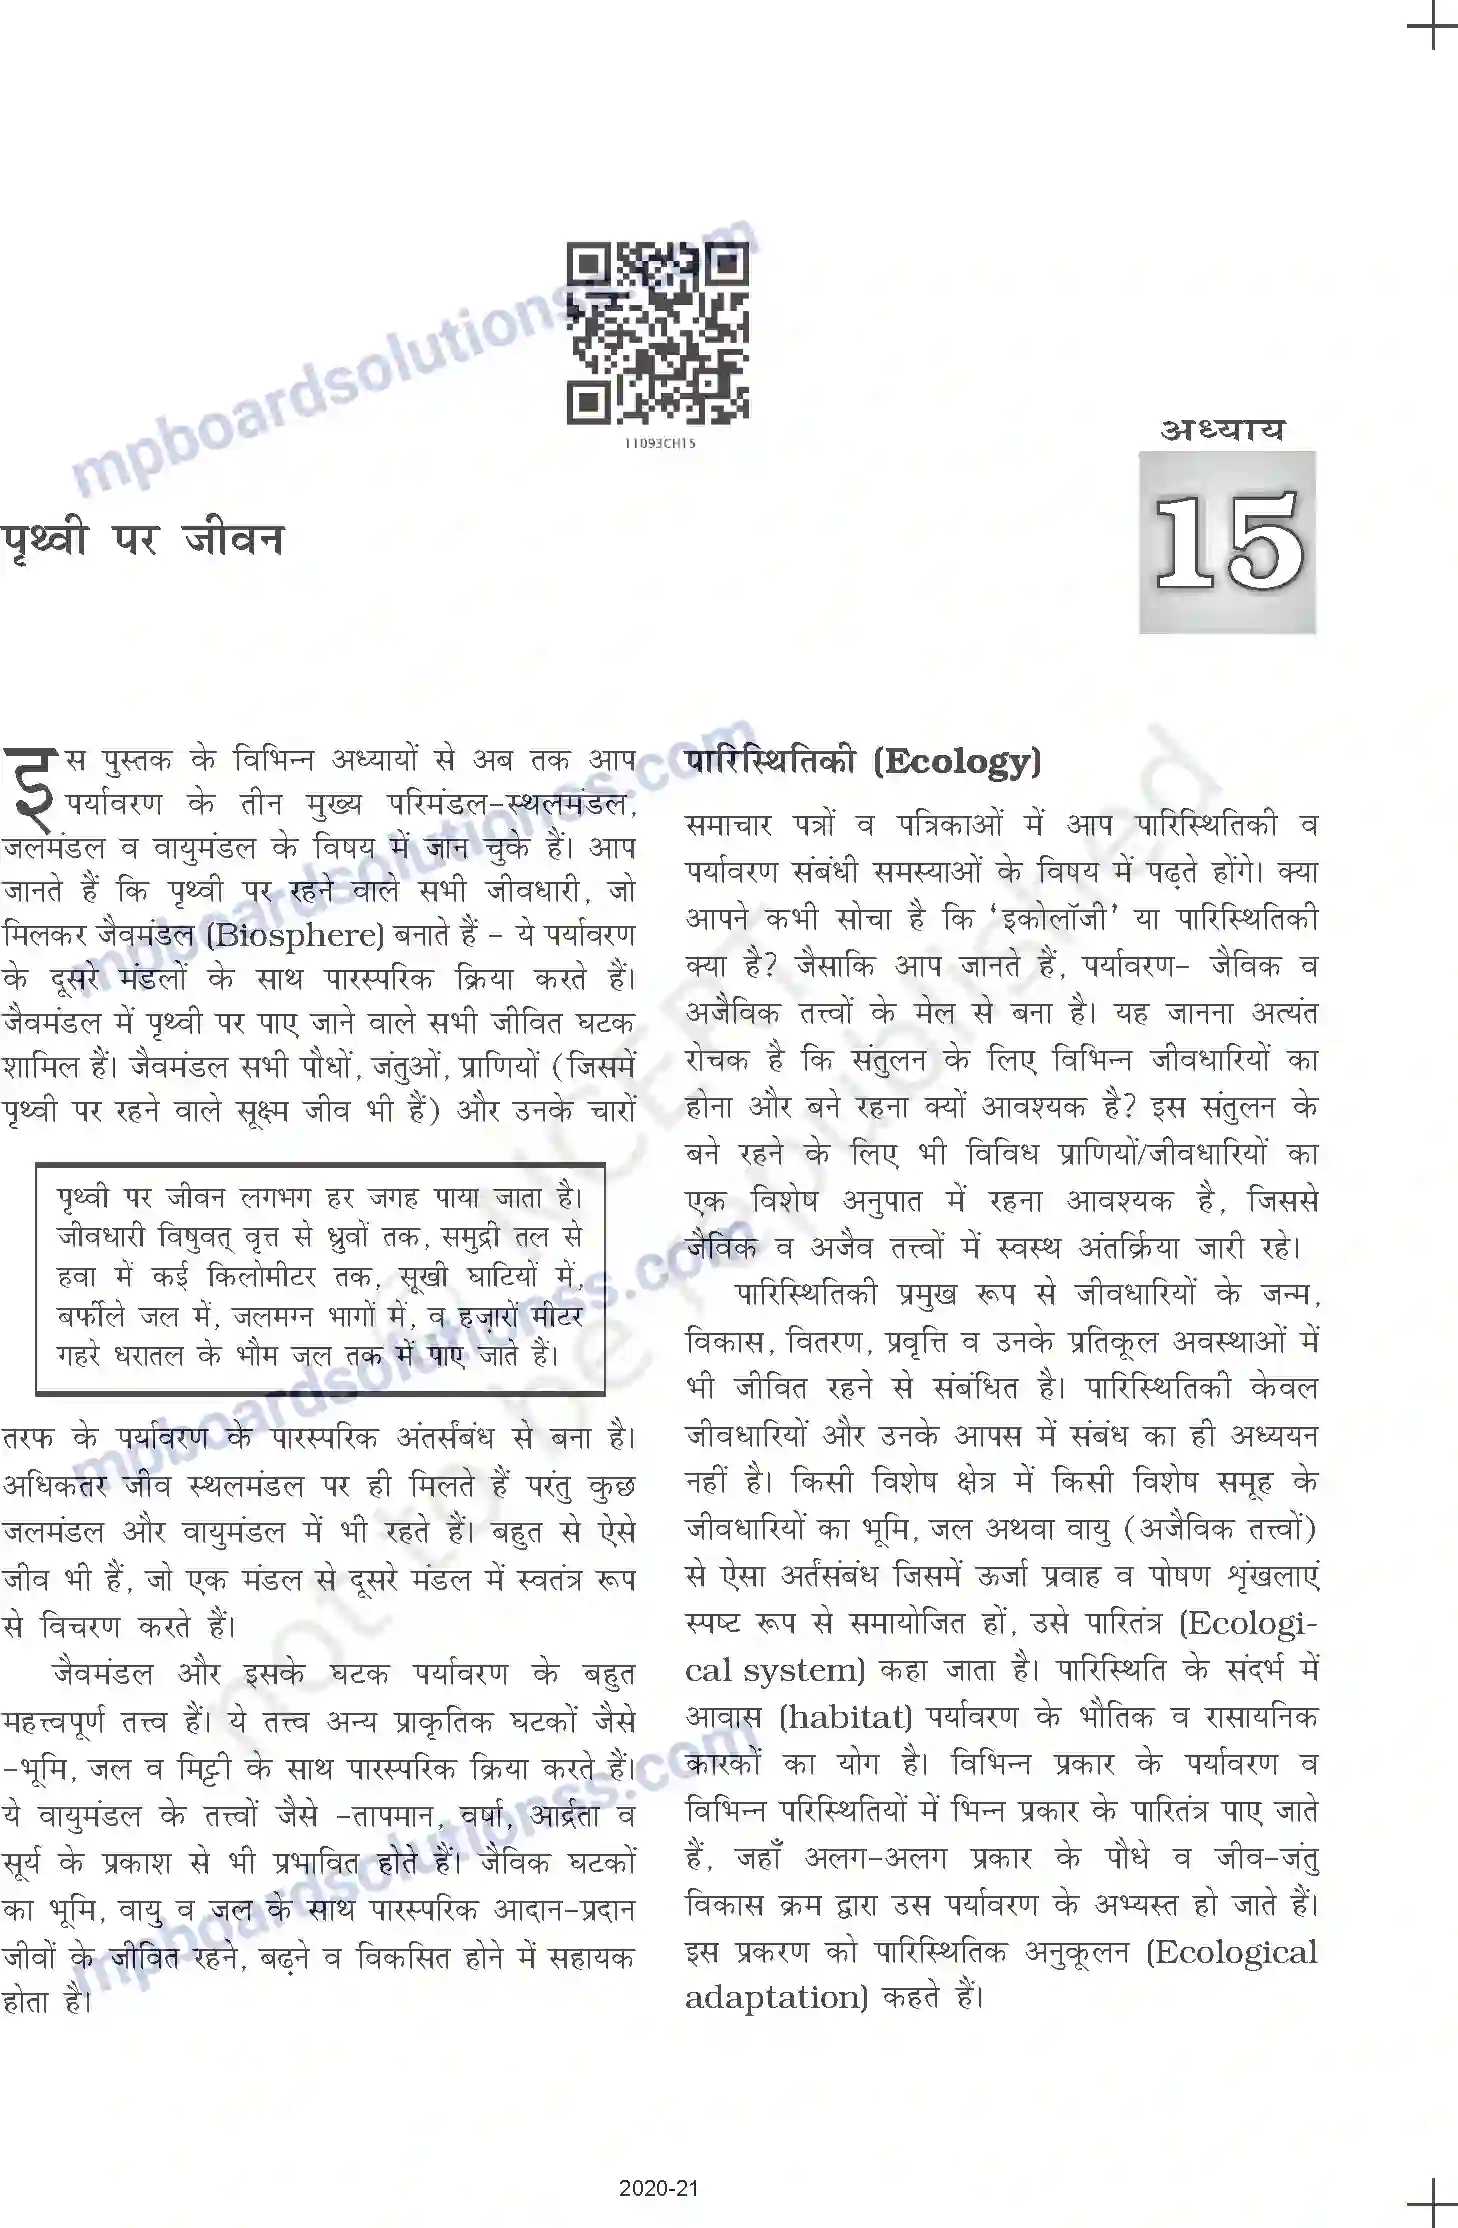 11093CH15
अध्याय
15
पृथ्वी पर जीवन
इस पुस्तक के विभिन्न अध्यायों से अब तक आप
पर्यावरण के तीन मुख्य परिमंडल-स्थलमंडल,
जलमंडल व वायुमंडल के विषय में जान चुके हैं। आप
जानते हैं कि पृथ्वी पर रहने वाले सभी जीवधारी, जो
मिलकर जैवमंडल (Biosphere) बनाते हैं – ये पर्यावरण
के दूसरे मंडलों के साथ पारस्परिक क्रिया करते हैं।
जैवमंडल में पृथ्वी पर पाए जाने वाले सभी जीवित घटक
शामिल हैं। जैवमंडल सभी पौधों, जंतुओं, प्राणियों (जिसमें
पृथ्वी पर रहने वाले सूक्ष्म जीव भी हैं) और उनके चारों
पृथ्वी पर जीवन लगभग हर जगह पाया जाता है।
जीवधारी विषुवत् वृत्त से ध्रुवों तक, समुद्री तल से
हवा में कई किलोमीटर तक, सूखी घाटियों में,
बर्फीले जल में, जलमग्न भागों में, व हज़ारों मीटर
गहरे धरातल के भौम जल तक में पाए जाते हैं।
तरफ के पर्यावरण के पारस्परिक अंतर्संबंध से बना है।
अधिकतर जीव स्थलमंडल पर ही मिलते हैं परंतु कुछ
जलमंडल और वायुमंडल में भी रहते हैं। बहुत से ऐसे
जीव भी हैं, जो एक मंडल से दूसरे मंडल में स्वतंत्र रूप
से विचरण करते हैं।
जैवमंडल और इसके घटक पर्यावरण के बहुत
महत्त्वपूर्ण तत्त्व हैं। ये तत्त्व अन्य प्राकृतिक घटकों जैसे
-भूमि, जल व मिट्टी के साथ पारस्परिक क्रिया करते हैं।
ये वायुमंडल के तत्त्वों जैसे -तापमान, वर्षा, आर्द्रता व
सूर्य के प्रकाश से भी प्रभावित होते हैं। जैविक घटकों
का भूमि, वायु व जल के साथ पारस्परिक आदान-प्रदान
जीवों के जीवित रहने, बढ़ने व विकसित होने में सहायक
होता है।
पारिस्थितिकी (Ecology)
समाचार पत्रों व पत्रिकाओं में आप पारिस्थितिकी व
पर्यावरण संबंधी समस्याओं के विषय में पढ़ते होंगे। क्या
आपने कभी सोचा है कि ‘इकोलॉजी’ या पारिस्थितिकी
क्या है? जैसाकि आप जानते हैं, पर्यावरण- जैविक व
अजैविक तत्त्वों के मेल से बना है। यह जानना अत्यंत
रोचक है कि संतुलन के लिए विभिन्न जीवधारियों का
होना और बने रहना क्यों आवश्यक है? इस संतुलन के
बने रहने के लिए भी विविध प्राणियों/जीवधारियों का
एक विशेष अनुपात में रहना आवश्यक है, जिससे
जैविक व अजैव तत्त्वों में स्वस्थ अंतर्क्रिया जारी रहे।
पारिस्थितिकी प्रमुख रूप से जीवधारियों के जन्म,
विकास, वितरण, प्रवृत्ति व उनके प्रतिकूल अवस्थाओं में
भी जीवित रहने से संबंधित है। पारिस्थितिकी केवल
जीवधारियों और उनके आपस में संबंध का ही अध्ययन
नहीं है। किसी विशेष क्षेत्र में किसी विशेष समूह के
जीवधारियों का भूमि, जल अथवा वायु (अजैविक तत्त्वों)
से ऐसा अर्तंसंबंध जिसमें ऊर्जा प्रवाह व पोषण शृंखलाएं
स्पष्ट रूप से समायोजित हों, उसे पारितंत्र (Ecologi-
cal system) कहा जाता है। पारिस्थिति के संदर्भ में
आवास (habitat) पर्यावरण के भौतिक व रासायनिक
कारकों का योग है। विभिन्न प्रकार के पर्यावरण व
विभिन्न परिस्थितियों में भिन्न प्रकार के पारितंत्र पाए जाते
हैं, जहाँ अलग-अलग प्रकार के पौधे व जीव-जंतु
विकास क्रम द्वारा उस पर्यावरण के अभ्यस्त हो जाते हैं।
इस प्रकरण को पारिस्थितिक अनुकूलन (Ecological
adaptation) कहते हैं।
2020-21
mpboardsolutionss.com
mpboardsolutionss.com
mpboardsolutionss.com
mpboardsolutionss.com
© NCERT
not to be republished